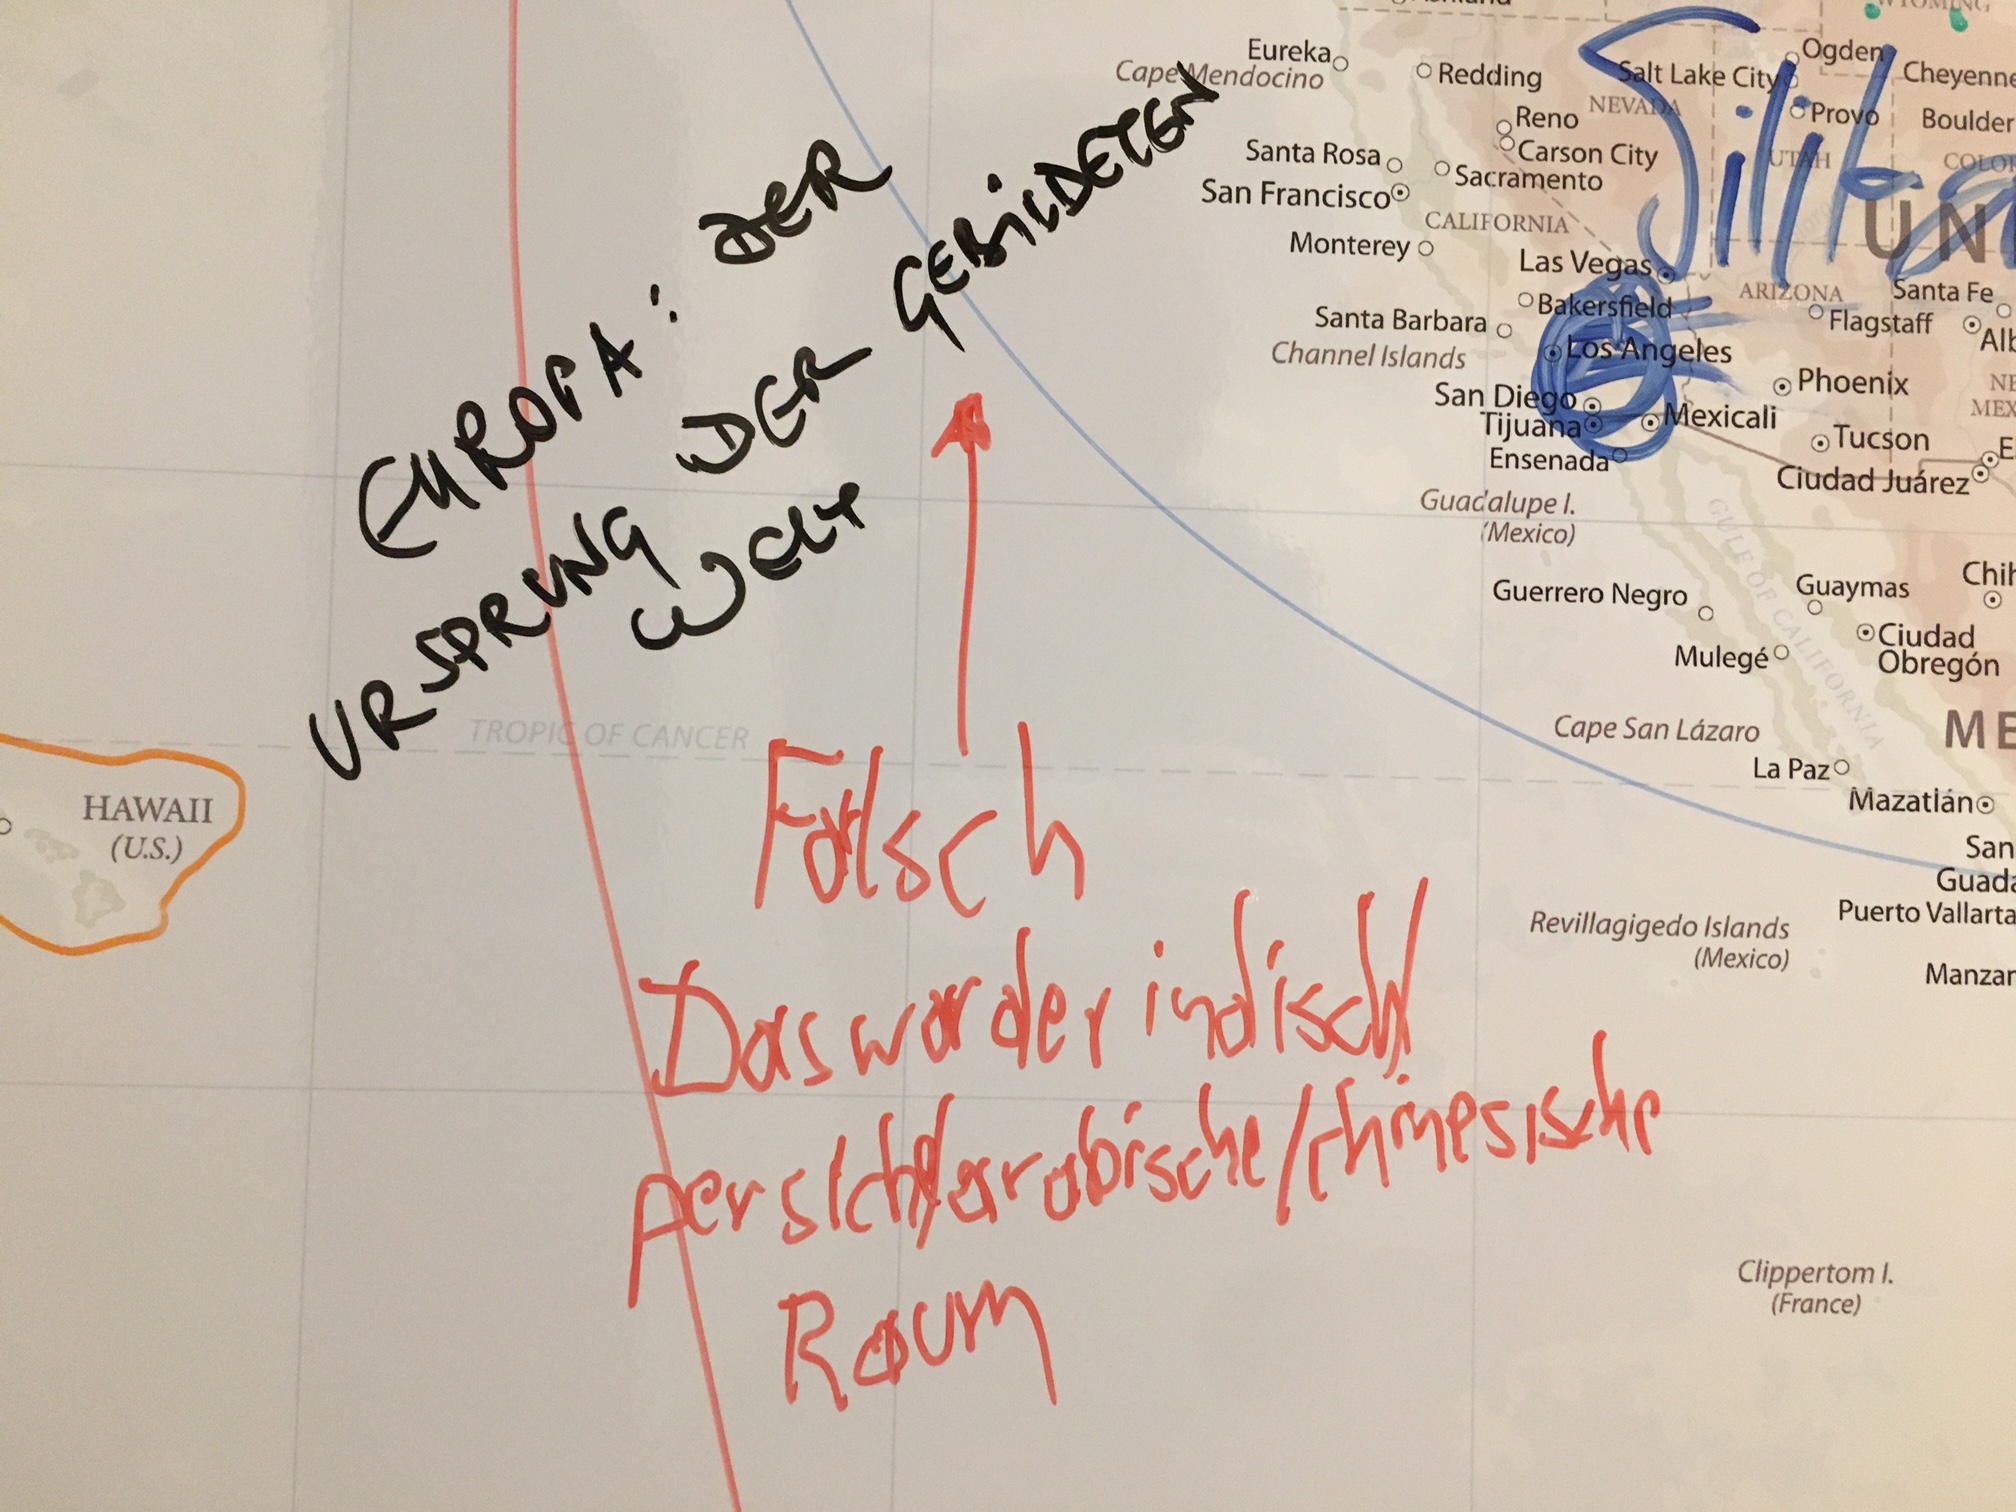 WYOMING
Eureka
Cape Mendocino
Redding
Ogden
Salt Lake City
Cheyenne
NEVADA
Provo
Boulder
Reno
Carson City
UTAH
Santa Rosa
Sacramento
San Francisco
CALIFORNIA
Monterey
Las Vegas
UN
ARIZONA
Santa Fe
Bakersfield
Santa Barbara
Flagstaff
Alb
Channel Islands
Los Angeles
Phoenix
NE
MEX
San Diego
Tijuana
Mexicali
Tucson
Ensenada
Ciudad Juárez
Guadalupe I.
(Mexico)
GULF OF CALIFORNIA
Guerrero Negro
Guaymas
Chih
Ciudad
Obregón
Mulegé
Cape San Lázaro
ME
La Paz
Mazatlán
San
Guada
Puerto Vallarta
Revillagigedo Islands
(Mexico)
Manzan
Clippertom I.
(France)
TROPIC OF CANCER
HAWAII
(U.S.)
EUROPA: DER
URSPRUNG DER GEBILDETEN
WELT
Falsch
Das war der indisch/
persich/arabische/chinesische
Raum